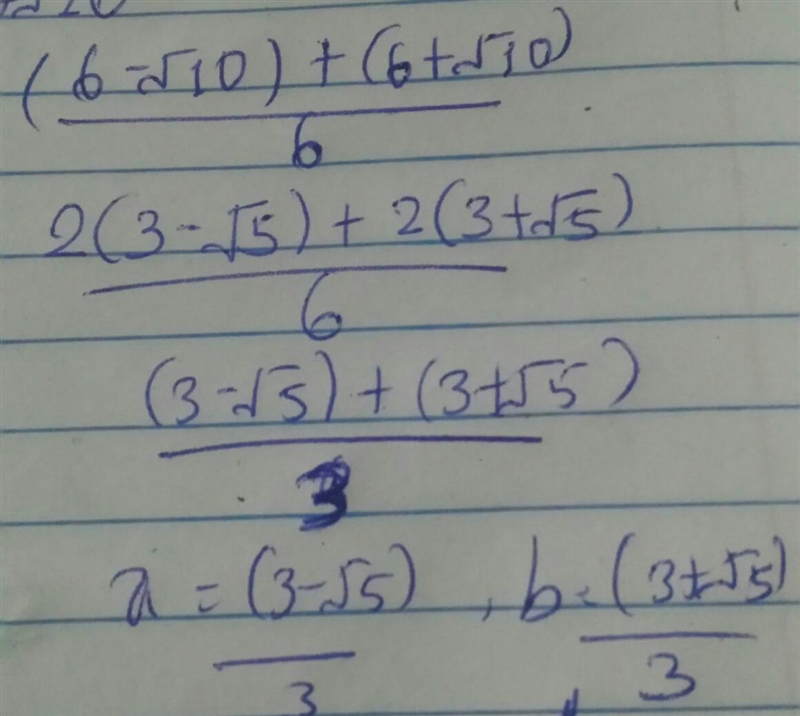 (6-√10) + (6+√10)
6
2(3-√5) + 2(3+√5)
6
(3-√5) + (3+√5)
3
a = (3-√5) , b = (3+√5)
3 3